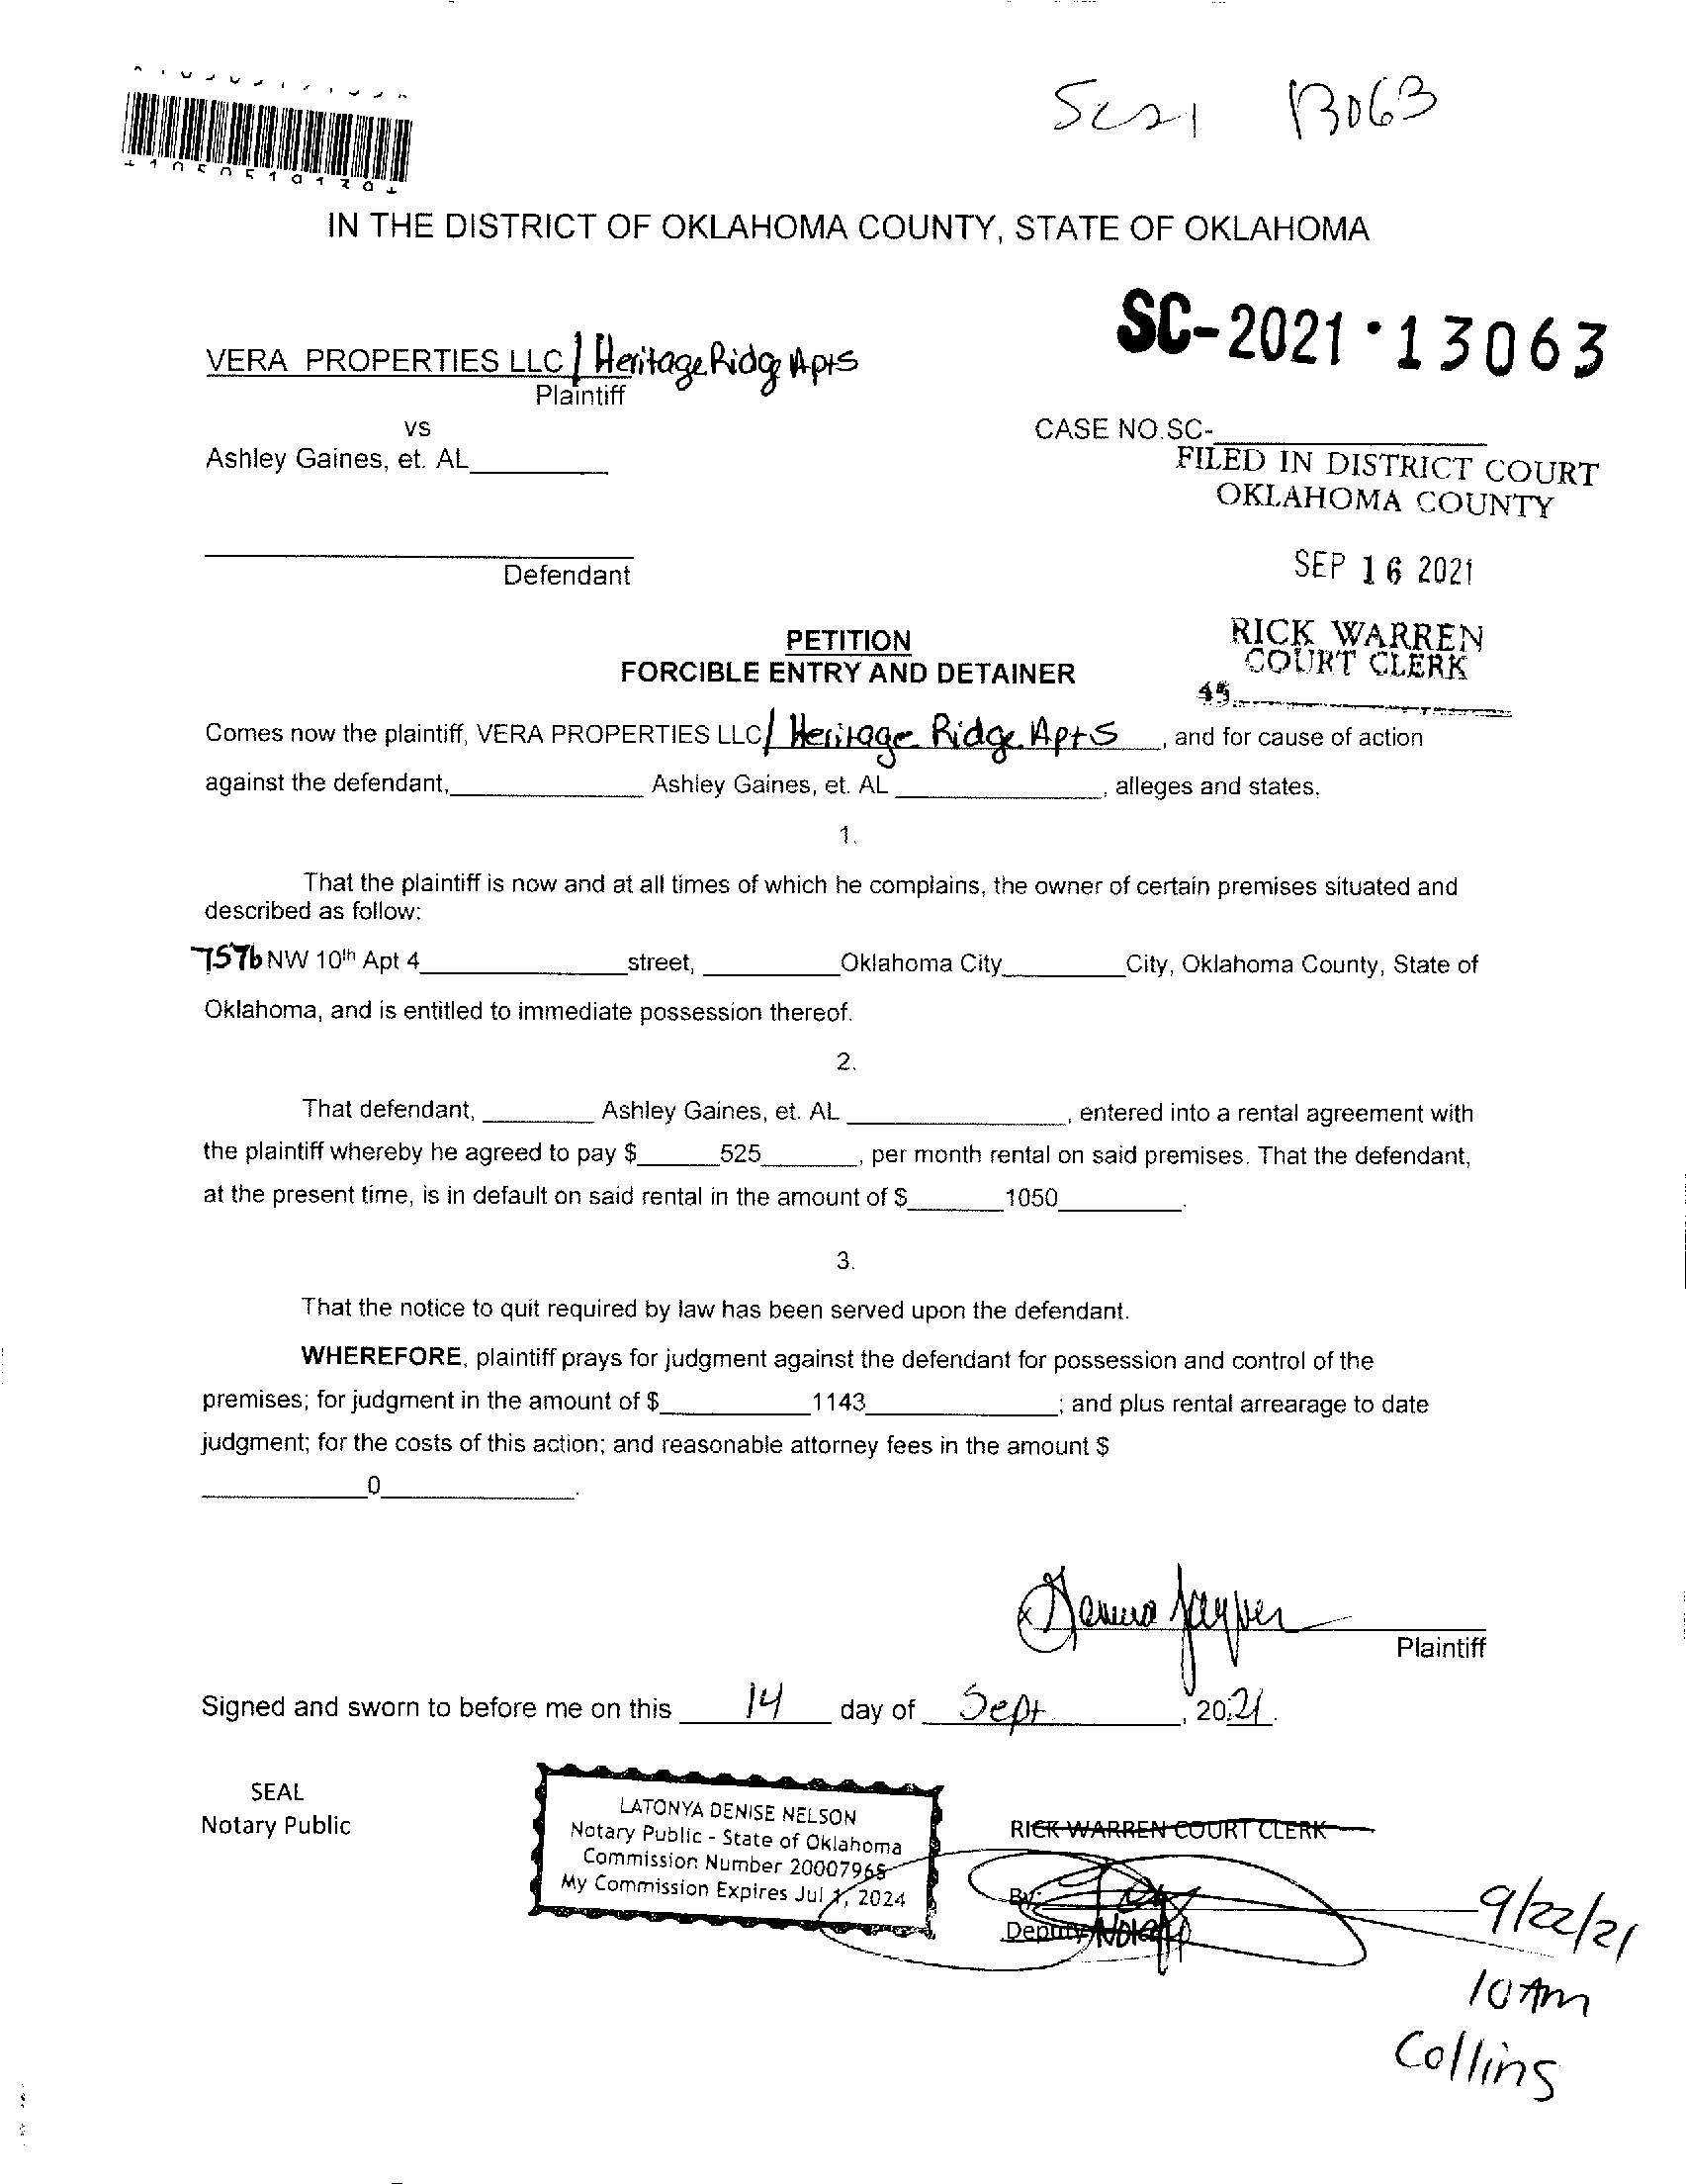 SC21 13063
IN THE DISTRICT OF OKLAHOMA COUNTY, STATE OF OKLAHOMA
SC-2021·13063
VERA PROPERTIES LLC / Heritage Ridge Apts
Plaintiff
vs
CASE NO.SC-
Ashley Gaines, et. AL
FILED IN DISTRICT COURT
OKLAHOMA COUNTY
SEP 16 2021
Defendant
RICK WARREN
COURT CLERK
45
PETITION
FORCIBLE ENTRY AND DETAINER
Comes now the plaintiff, VERA PROPERTIES LLC / Heritage Ridge Apts, and for cause of action
against the defendant, Ashley Gaines, et. AL, alleges and states.
1.
That the plaintiff is now and at all times of which he complains, the owner of certain premises situated and
described as follow:
7576 NW 10th Apt 4 street, Oklahoma City City, Oklahoma County, State of
Oklahoma, and is entitled to immediate possession thereof.
2.
That defendant, Ashley Gaines, et. AL, entered into a rental agreement with
the plaintiff whereby he agreed to pay $ 525, per month rental on said premises. That the defendant,
at the present time, is in default on said rental in the amount of $ 1050.
3.
That the notice to quit required by law has been served upon the defendant.
WHEREFORE, plaintiff prays for judgment against the defendant for possession and control of the
premises; for judgment in the amount of $ 1143; and plus rental arrearage to date
judgment; for the costs of this action; and reasonable attorney fees in the amount $
0.
Plaintiff
Signed and sworn to before me on this 14 day of Sept, 2021.
SEAL
Notary Public
LATONYA DENISE NELSON
Notary Public - State of Oklahoma
Commission Number 20007965
My Commission Expires Jul 1, 2024
RICK WARREN COURT CLERK
By:
Deputy
9/22/21
10 Am
Collins